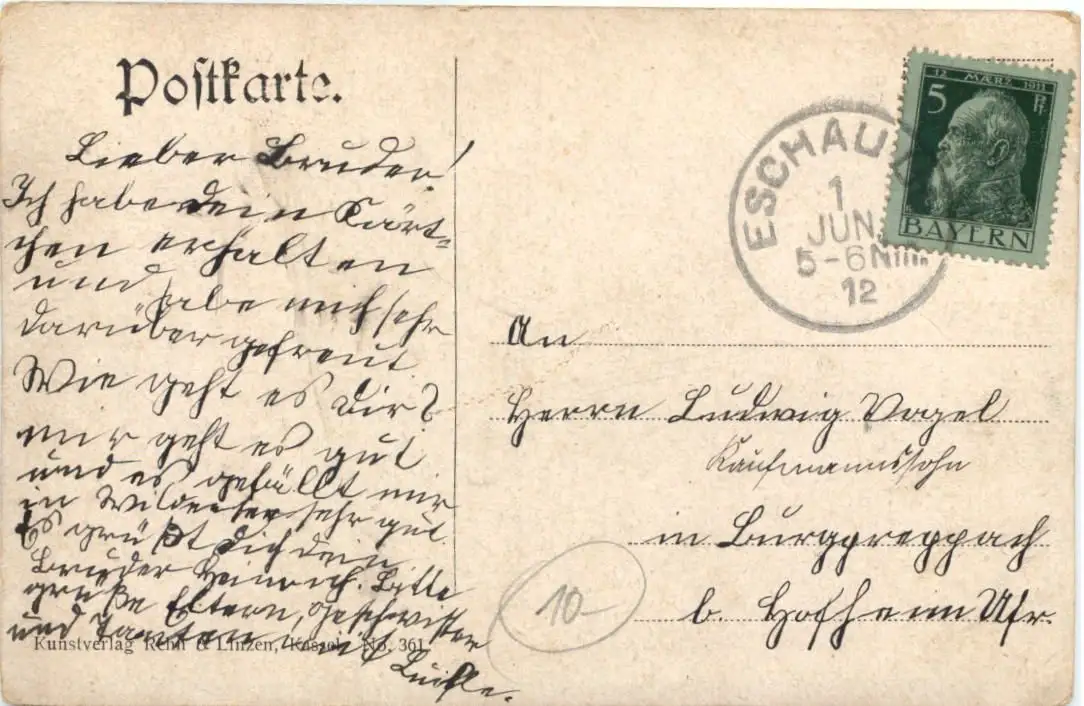 Postkarte.
Lieber Bruder!
Ich habe dein Kärt-
chen erhalten
und habe mich sehr
darüber gefreut
Wie geht es dir?
mir geht es gut
und es gefällt mir
in sehr gut
Es grüßt dich dein
Bruder Heinrich. Bitte
grüße Eltern, Geschwister
und Tanten
Kunstverlag Rehn & Linzen, Kassel. No. 361.
12 MÆRZ 1911
5 Pf
BAYERN
ESCHAU
1
JUN.
5-6 Nm.
12
An
Herrn Ludwig Vogel
Kaufmannssohn
in Burgpreppach
b. Hofheim Ufr.
10